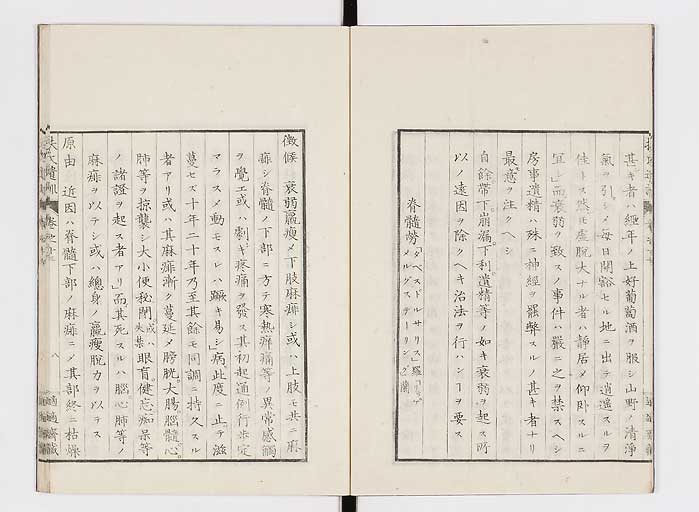 甚キ者ハ經年ノ上好葡萄酒ヲ服シ山野ノ清淨
氣ヲ引シメ毎日開豁セル地ニ出テ逍遥スルヲ
佳トス然𪜈虚脱大ナル者ハ静居メ仰卧スルニ
宜」而衰弱ヲ致スノ事件ハ嚴ニ之ヲ禁スヘシ
房事遺精ハ殊ニ神經ヲ罷弊スルノ甚キ者ナリ
最意ヲ注クヘシ
自餘帶下。崩漏。下利。遺精等ノ如キ衰弱ヲ起ス所
以ノ遠因ヲ除クヘキ治法ヲ行ハンヿヲ要ス
脊髓勞 「タベスドルサリス」羅
メルグステーリング 蘭
徴候 衰弱羸瘦メ下肢麻痺シ或ハ上肢モ共ニ麻
痺シ脊髓ノ下部ニ方テ寒熱癢痛等ノ異常感觸
ヲ覺エ或ハ劇キ疼痛ヲ發ス其初起通例行歩定
マラスメ動モスレハ蹶キ易シ」病此度ニ止テ滋
蔓セス十年二十年乃至其餘モ同調ニ持久スル
者アリ或ハ其麻痺漸ク蔓延メ膀胱大腸腦髓心。
肺等ヲ掠襲シ大小便秘閉或ハ失禁眼盲健忘痴呆等
ノ諸證ヲ起ス者アリ」而其死スルハ腦心肺等ノ
麻痺ヲ以テシ或ハ總身ノ羸瘦脱力ヲ以テス
原由 近因ハ脊髓下部ノ麻痺ニメ其部終ニ枯燥
扶氏遺訓 卷之
八
適適齋藏